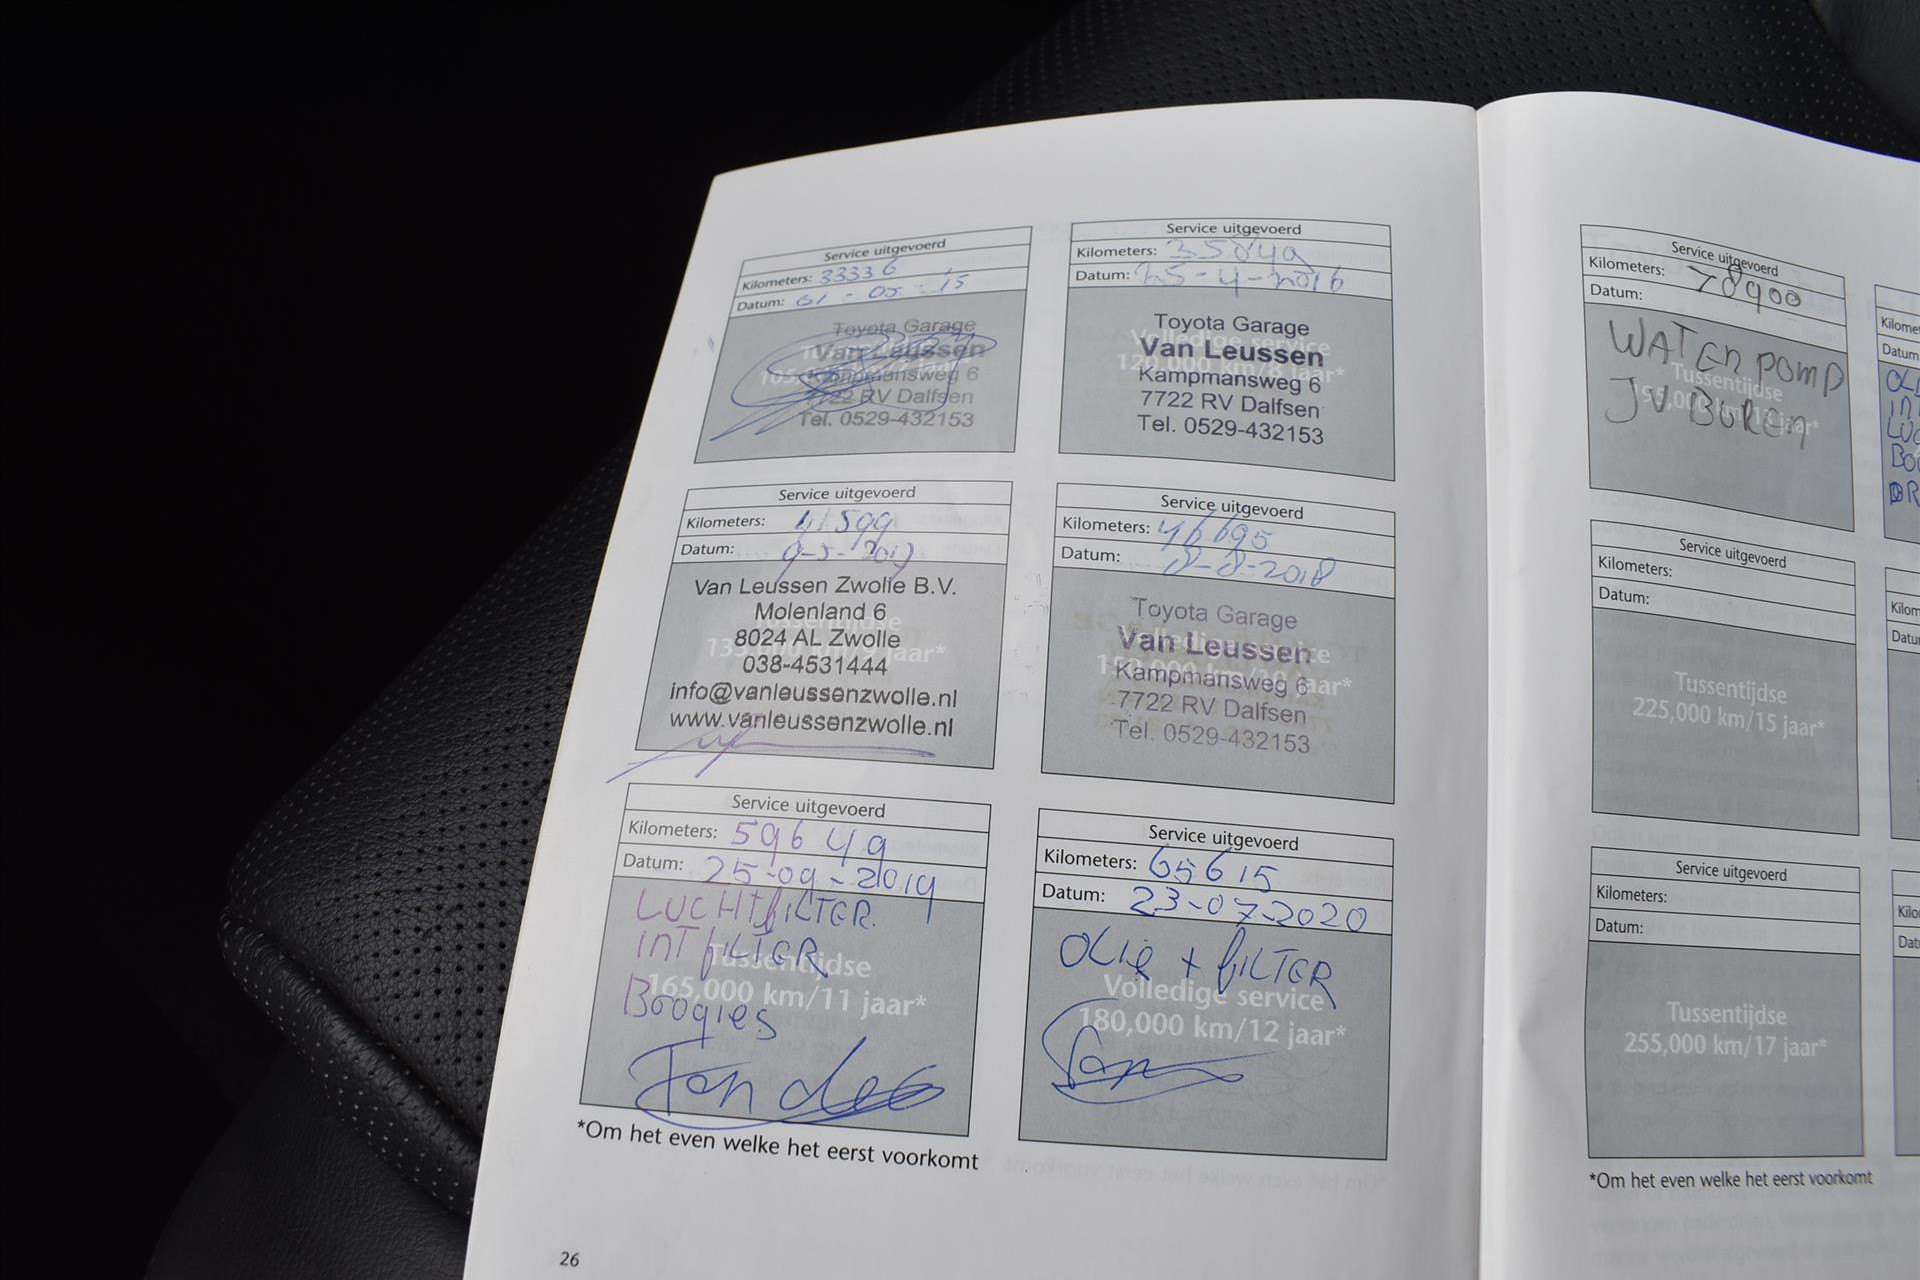 Service uitgevoerd
Kilometers: 33336
Datum: 01-05-15
Toyota Garage
Van Leussen
Kampmansweg 6
7722 RV Dalfsen
Tel. 0529-432153
Service uitgevoerd
Kilometers: 35849
Datum: 25-4-2016
Toyota Garage
Van Leussen
Kampmansweg 6
7722 RV Dalfsen
Tel. 0529-432153
Volledige service
120,000 km/8 jaar*
Service uitgevoerd
Kilometers: 41599
Datum: 9-5-2017
Van Leussen Zwolle B.V.
Molenland 6
8024 AL Zwolle
038-4531444
info@vanleussenzwolle.nl
www.vanleussenzwolle.nl
Tussentijdse
135,000 km/9 jaar*
Service uitgevoerd
Kilometers: 46695
Datum: 8-8-2018
Toyota Garage
Van Leussen
Kampmansweg 6
7722 RV Dalfsen
Tel. 0529-432153
Volledige service
Service uitgevoerd
Kilometers: 59649
Datum: 25-09-2019
LUCHTFILTER.
INT FILTER
BOOGIES
Tussentijdse
165,000 km/11 jaar*
Service uitgevoerd
Kilometers: 65615
Datum: 23-07-2020
OLIE + FILTER
Volledige service
180,000 km/12 jaar*
*Om het even welke het eerst voorkomt
26
Service uitgevoerd
Kilometers: 78900
Datum:
WATERPOMP
JV BUREN
Tussentijdse
Service uitgevoerd
Kilometers:
Datum:
Tussentijdse
225,000 km/15 jaar*
Service uitgevoerd
Kilometers:
Datum:
Tussentijdse
255,000 km/17 jaar*
*Om het even welke het eerst voorkomt